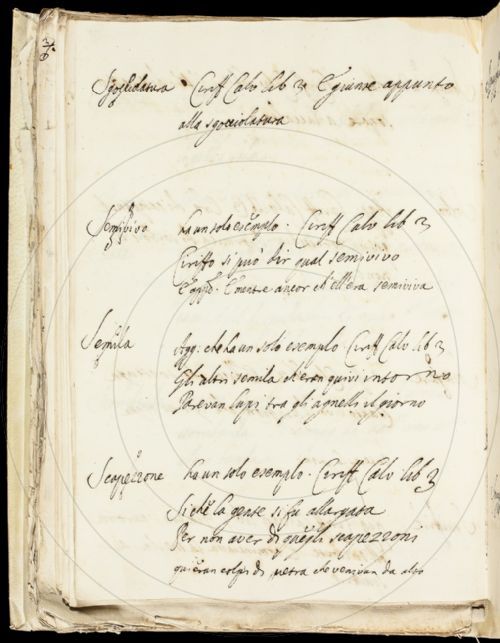 Sgocciolatura Ciriff Calv lib 3 E giunse appunto
alla sgocciolatura
Semivivo ha un solo esemplo. Ciriff Calv lib 3
Ciriffo si può dir qual semivivo
E mentre ancor ch'ell'era semiviva
Semila Agg: che ha un solo esemplo. Ciriff Calv lib 3
Gli altri semila ch'eran quivi intorno
Parevan lupi tra gli agnelli il giorno
Scapezzone ha un solo esemplo. Ciriff Calv lib 3
Sicchè la gente si fu allargata
Per non aver di quegli scapezzoni
qui eran colpi di pietra che venivan da alto